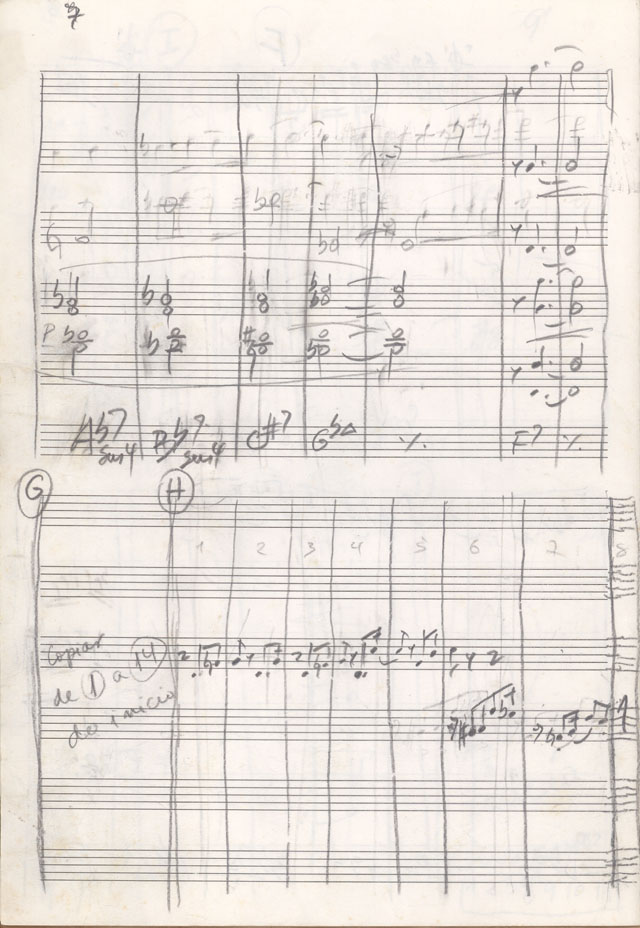 Ab7 sus4 Bb7 sus4 C#7 Gb△ ٪ F7 ٪
G H
1 2 3 4 5 6 7 8
Copiar
de 1 a 14
do inicio